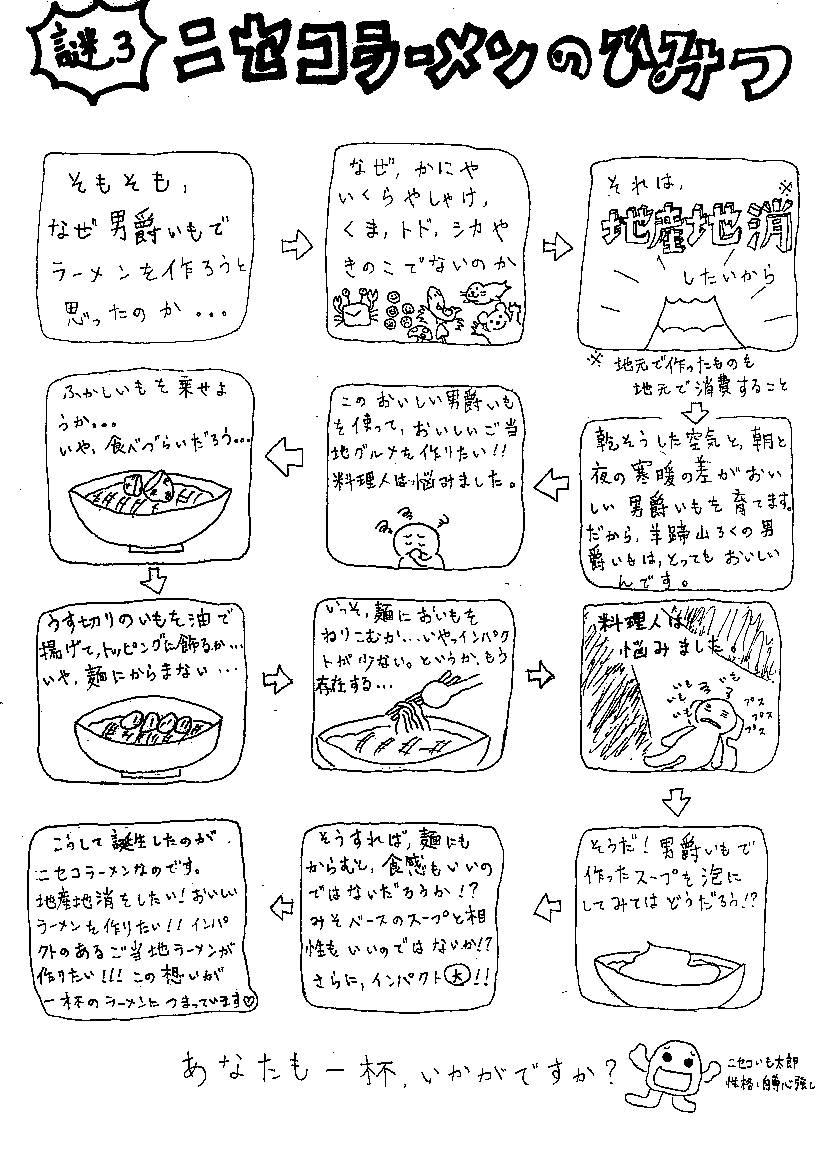 謎3
ニセコラーメンのひみつ
そもそも、
なぜ男爵いもで
ラーメンを作ろうと
思ったのか...
なぜ、かにや
いくらやしゃけ、
くま、トド、シカや
きのこでないのか
それは、
※
地産地消
したいから
※ 地元で作ったものを
地元で消費すること
乾そうした空気と、朝と
夜の寒暖の差がおい
しい男爵いもを育てます。
だから、羊蹄山ろくの男
爵いもは、とっても おいしい
んです。
このおいしい男爵いも
を使って、おいしいご当
地グルメを作りたい!!
料理人は悩みました。
ふかしいもを乗せよ
うか...
いや、食べづらいだろう...
うす切りのいもを油で
揚げて、トッピングに飾るか...
いや、麺にからまない...
いっそ、麺においもを
ねりこむか...いやっインパク
トが少ない。というか、もう
存在する...
料理人は
悩みました。
いも
いも
いも
いも
いも
プス
プス
プス
そうだ!男爵いもで
作ったスープを泡に
してみてはどうだろう!?
そうすれば、麺にも
からむし、食感もいいの
ではないだろうか!?
みそベースのスープと相
性もいいのではないか!?
さらに、インパクト大!!
こうして誕生したのが
ニセコラーメンなのです。
地産地消をしたい!おいしい
ラーメンを作りたい!!インパ
クトのあるご当地ラーメンが
作りたい!!!この想いが
一杯のラーメンにつまっています♡
あなたも一杯、いかがですか?
ニセコいも太郎
性格:自尊心強し